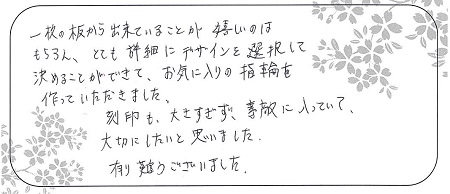 一枚の板から出来ていることが嬉しいのは
もちろん、とても詳細にデザインを選択して
決めることができて、お気に入りの指輪を
作っていただきました。
刻印も、大きすぎず、素敵に入っていて、
大切にしたいと思いました。
有り難うございました。